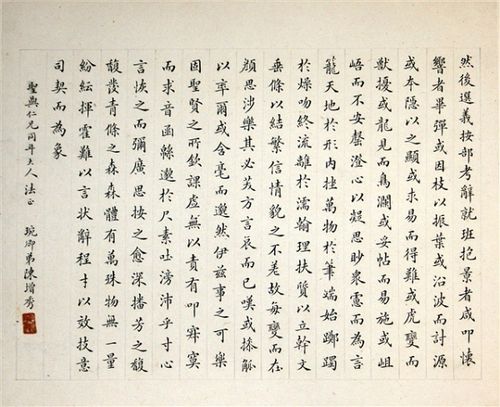 然後選義按部考辭就班抱景者咸叩懷
響者畢彈或因枝以振葉或沿波而討源
或本隱以之顯或求易而得難或虎變而
獸擾或龍見而鳥瀾或妥帖而易施或岨
峿而不安罄澄心以凝思眇衆慮而為言
籠天地於形內挫萬物於筆端始躑躅
於燥吻終流離於濡翰理扶質以立幹文
垂條以結繁信情貌之不差故每變而在
顏思涉樂其必笑方言哀而已嘆或操觚
以率爾或含毫而邈然伊茲事之可樂
固聖賢之所欽課虛無以責有叩寂寞
而求音函緜邈於尺素吐滂沛乎寸心
言恢之而彌廣思按之愈深播芳之馥
馥發青條之森森體有萬殊物無一量
紛紜揮霍難以言狀辭程才以效技意
司契而為象
聖與仁兄同年大人法正 琬卿弟陳增秀